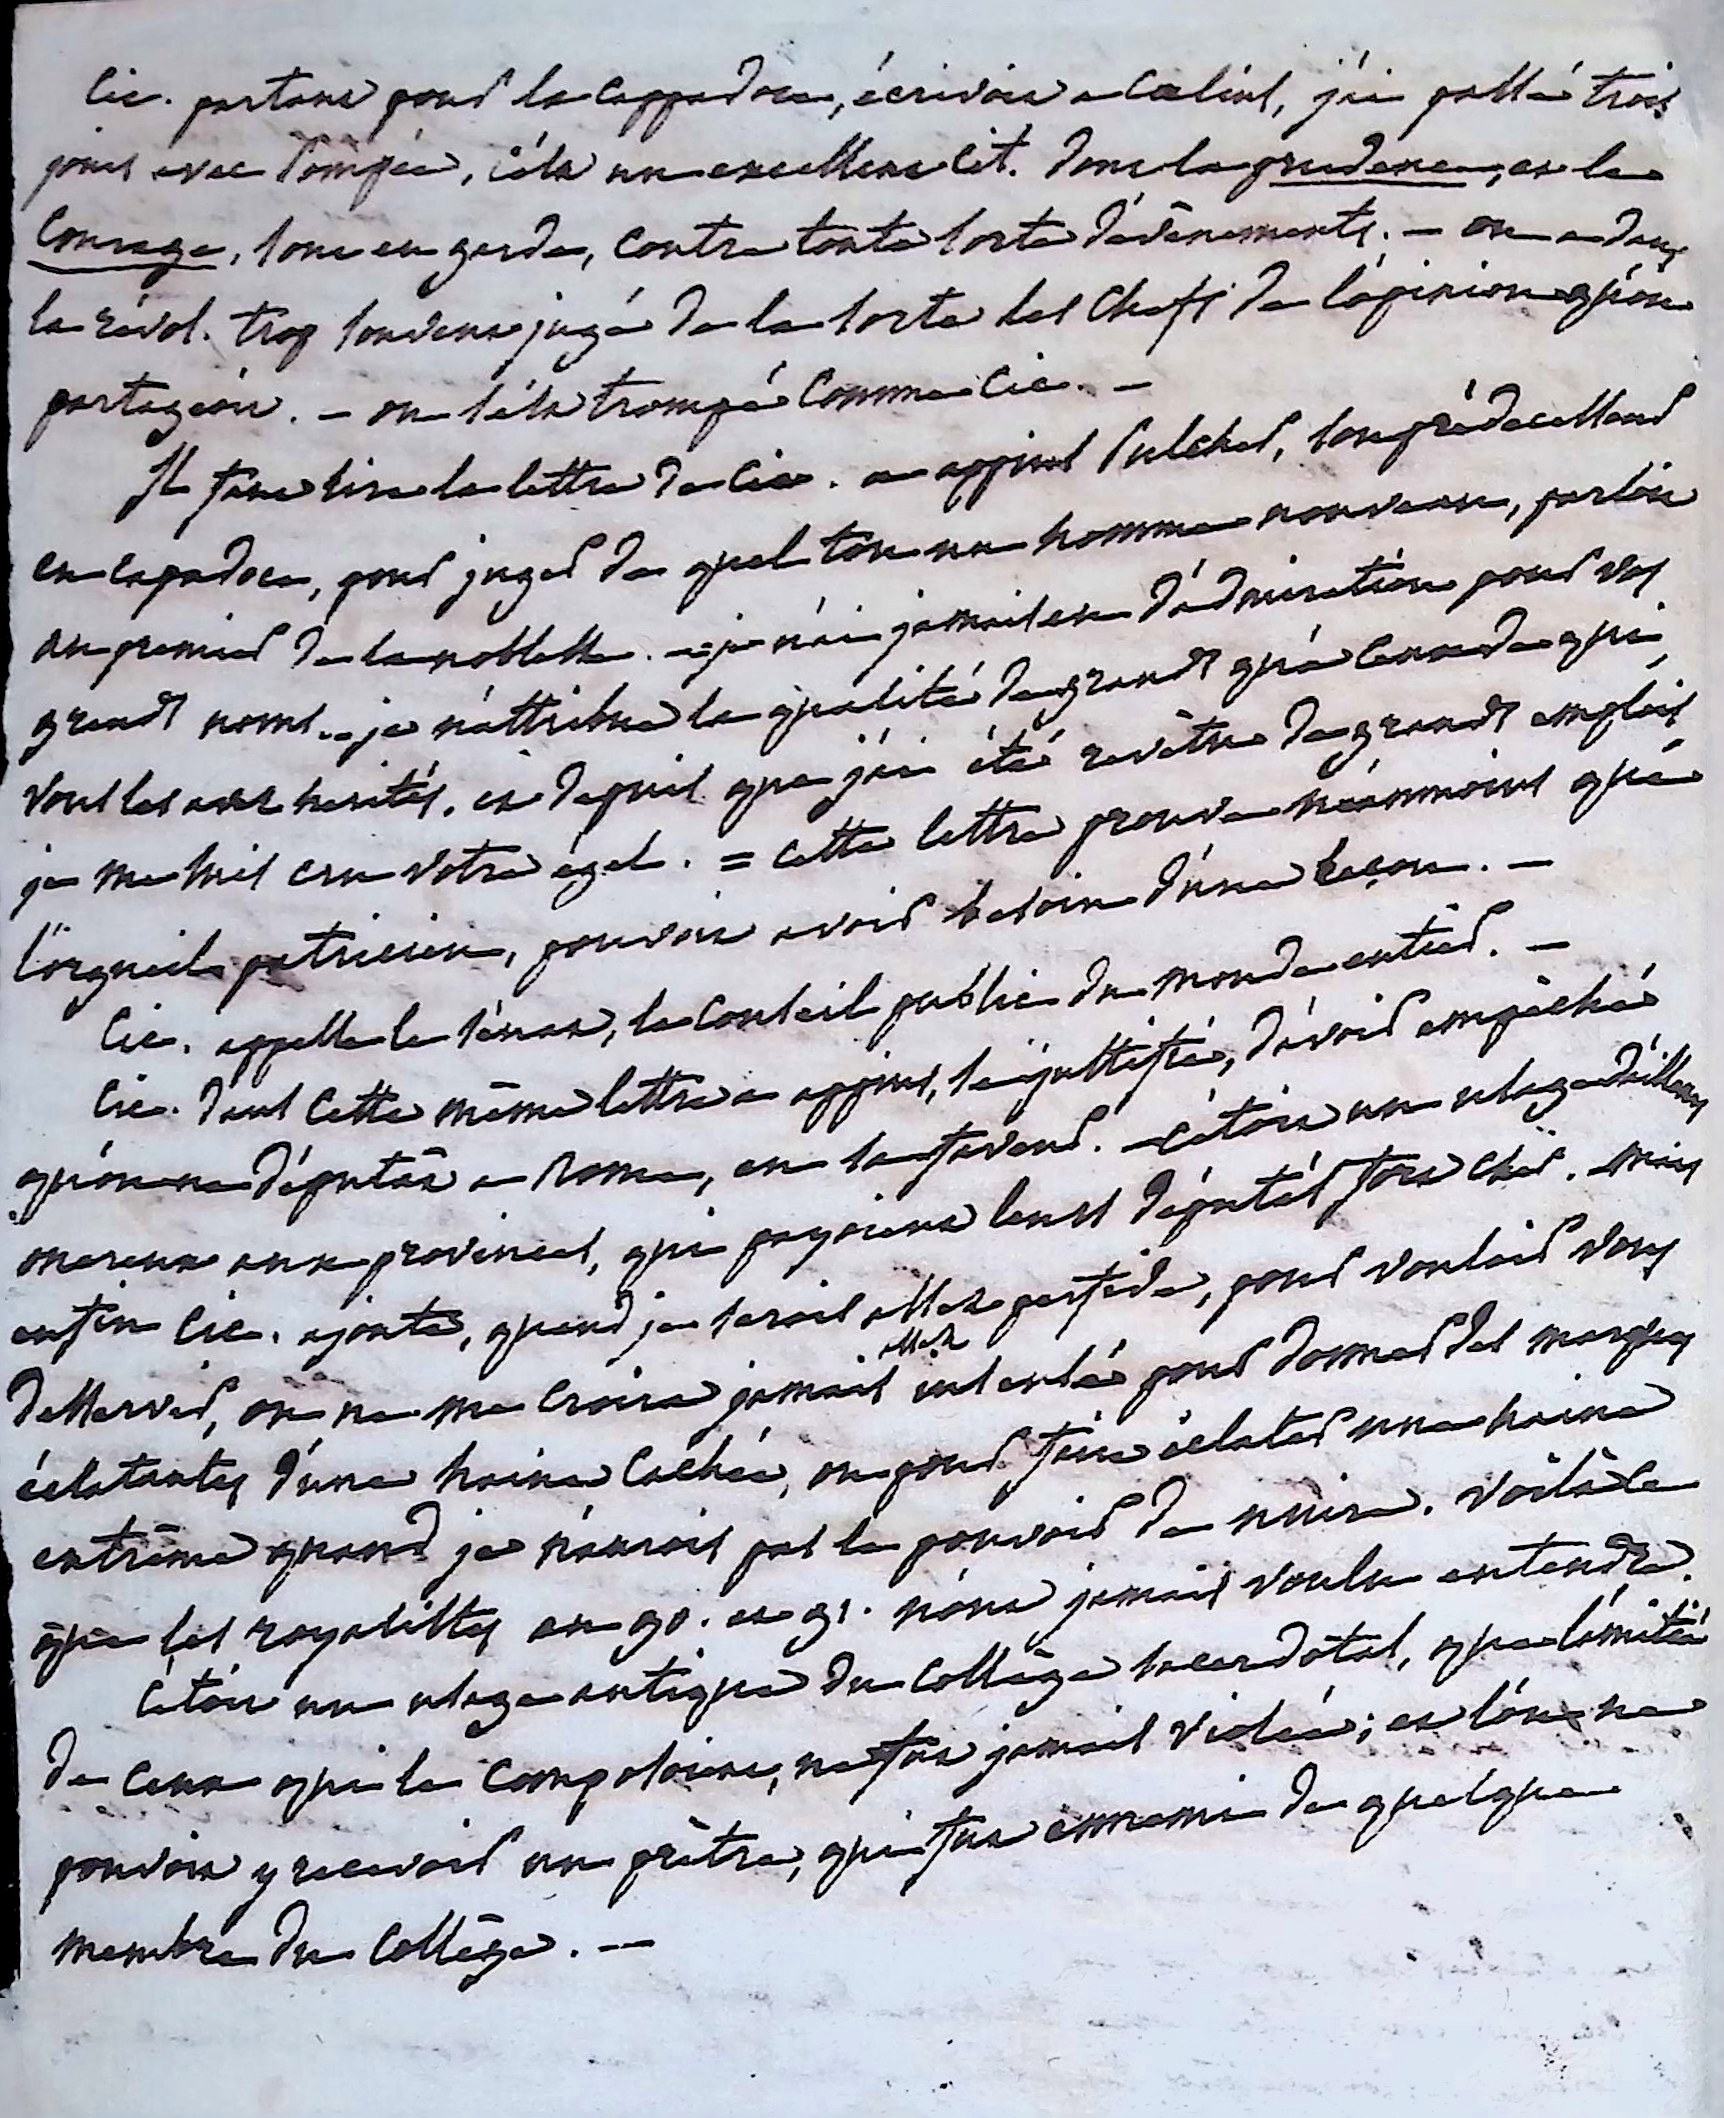 Cic. partant pour la Cappadoce, écrivoit a Cœlius, j'ai passé trois
jours avec Pompée, c'est un excellent cit. dont la prudence, et le
Courage, sont en garde, contre toute sorte d'évènements. - on a dans
la révol. trop souvent jugé de la sorte les Chefs de l'opinion qu'on
partageoit. - on s'est trompé comme Cic. -
Il faut lire la lettre de Cic. a appius Pulcher, son prédécesseur
en Capadoce, pour juger de quel ton un homme nouveau, parloit
au premier de la noblesse. - je n'ai jamais eu d'admiration pour vos
grands noms. - je n'attribue la qualité de grands qu'à ceux de qui
vous les avez herités. et depuis que j'ai été revêtu de grands emplois
je me suis cru votre égal. = cette lettre prouve néanmoins que
l'orgueil patricien, pouvoit avoir besoin d'une leçon. -
Cic. appelle le sénat, le Conseil public du monde entier. -
Cic. dans cette même lettre a appius, se justifie, d'avoir empêché
qu'on ne députât a Rome, en sa faveur. - c'étoit un usage d'ailleurs
onereux aux provinces, qui payoient leurs députés fort cher. mais
enfin Cic. ajoute, quand je serois assez perfide, pour vouloir vous
desservir, on ne me croira jamais assez insensé pour donner des marques
éclatantes d'une haine cachée, ou pour faire éclater une haine
extrême quand je n'aurois pas le pouvoir de nuire. voilà ce
que les royalistes en 90. et 91. n'ont jamais voulu entendre.
C'étoit un usage antique du collège sacerdotal, que l'amitié
de ceux qui le composoient, ne fût jamais violée; et l'on ne
pouvoit y recevoir un prêtre, qui fut ennemi de quelque
membre du Collège. -